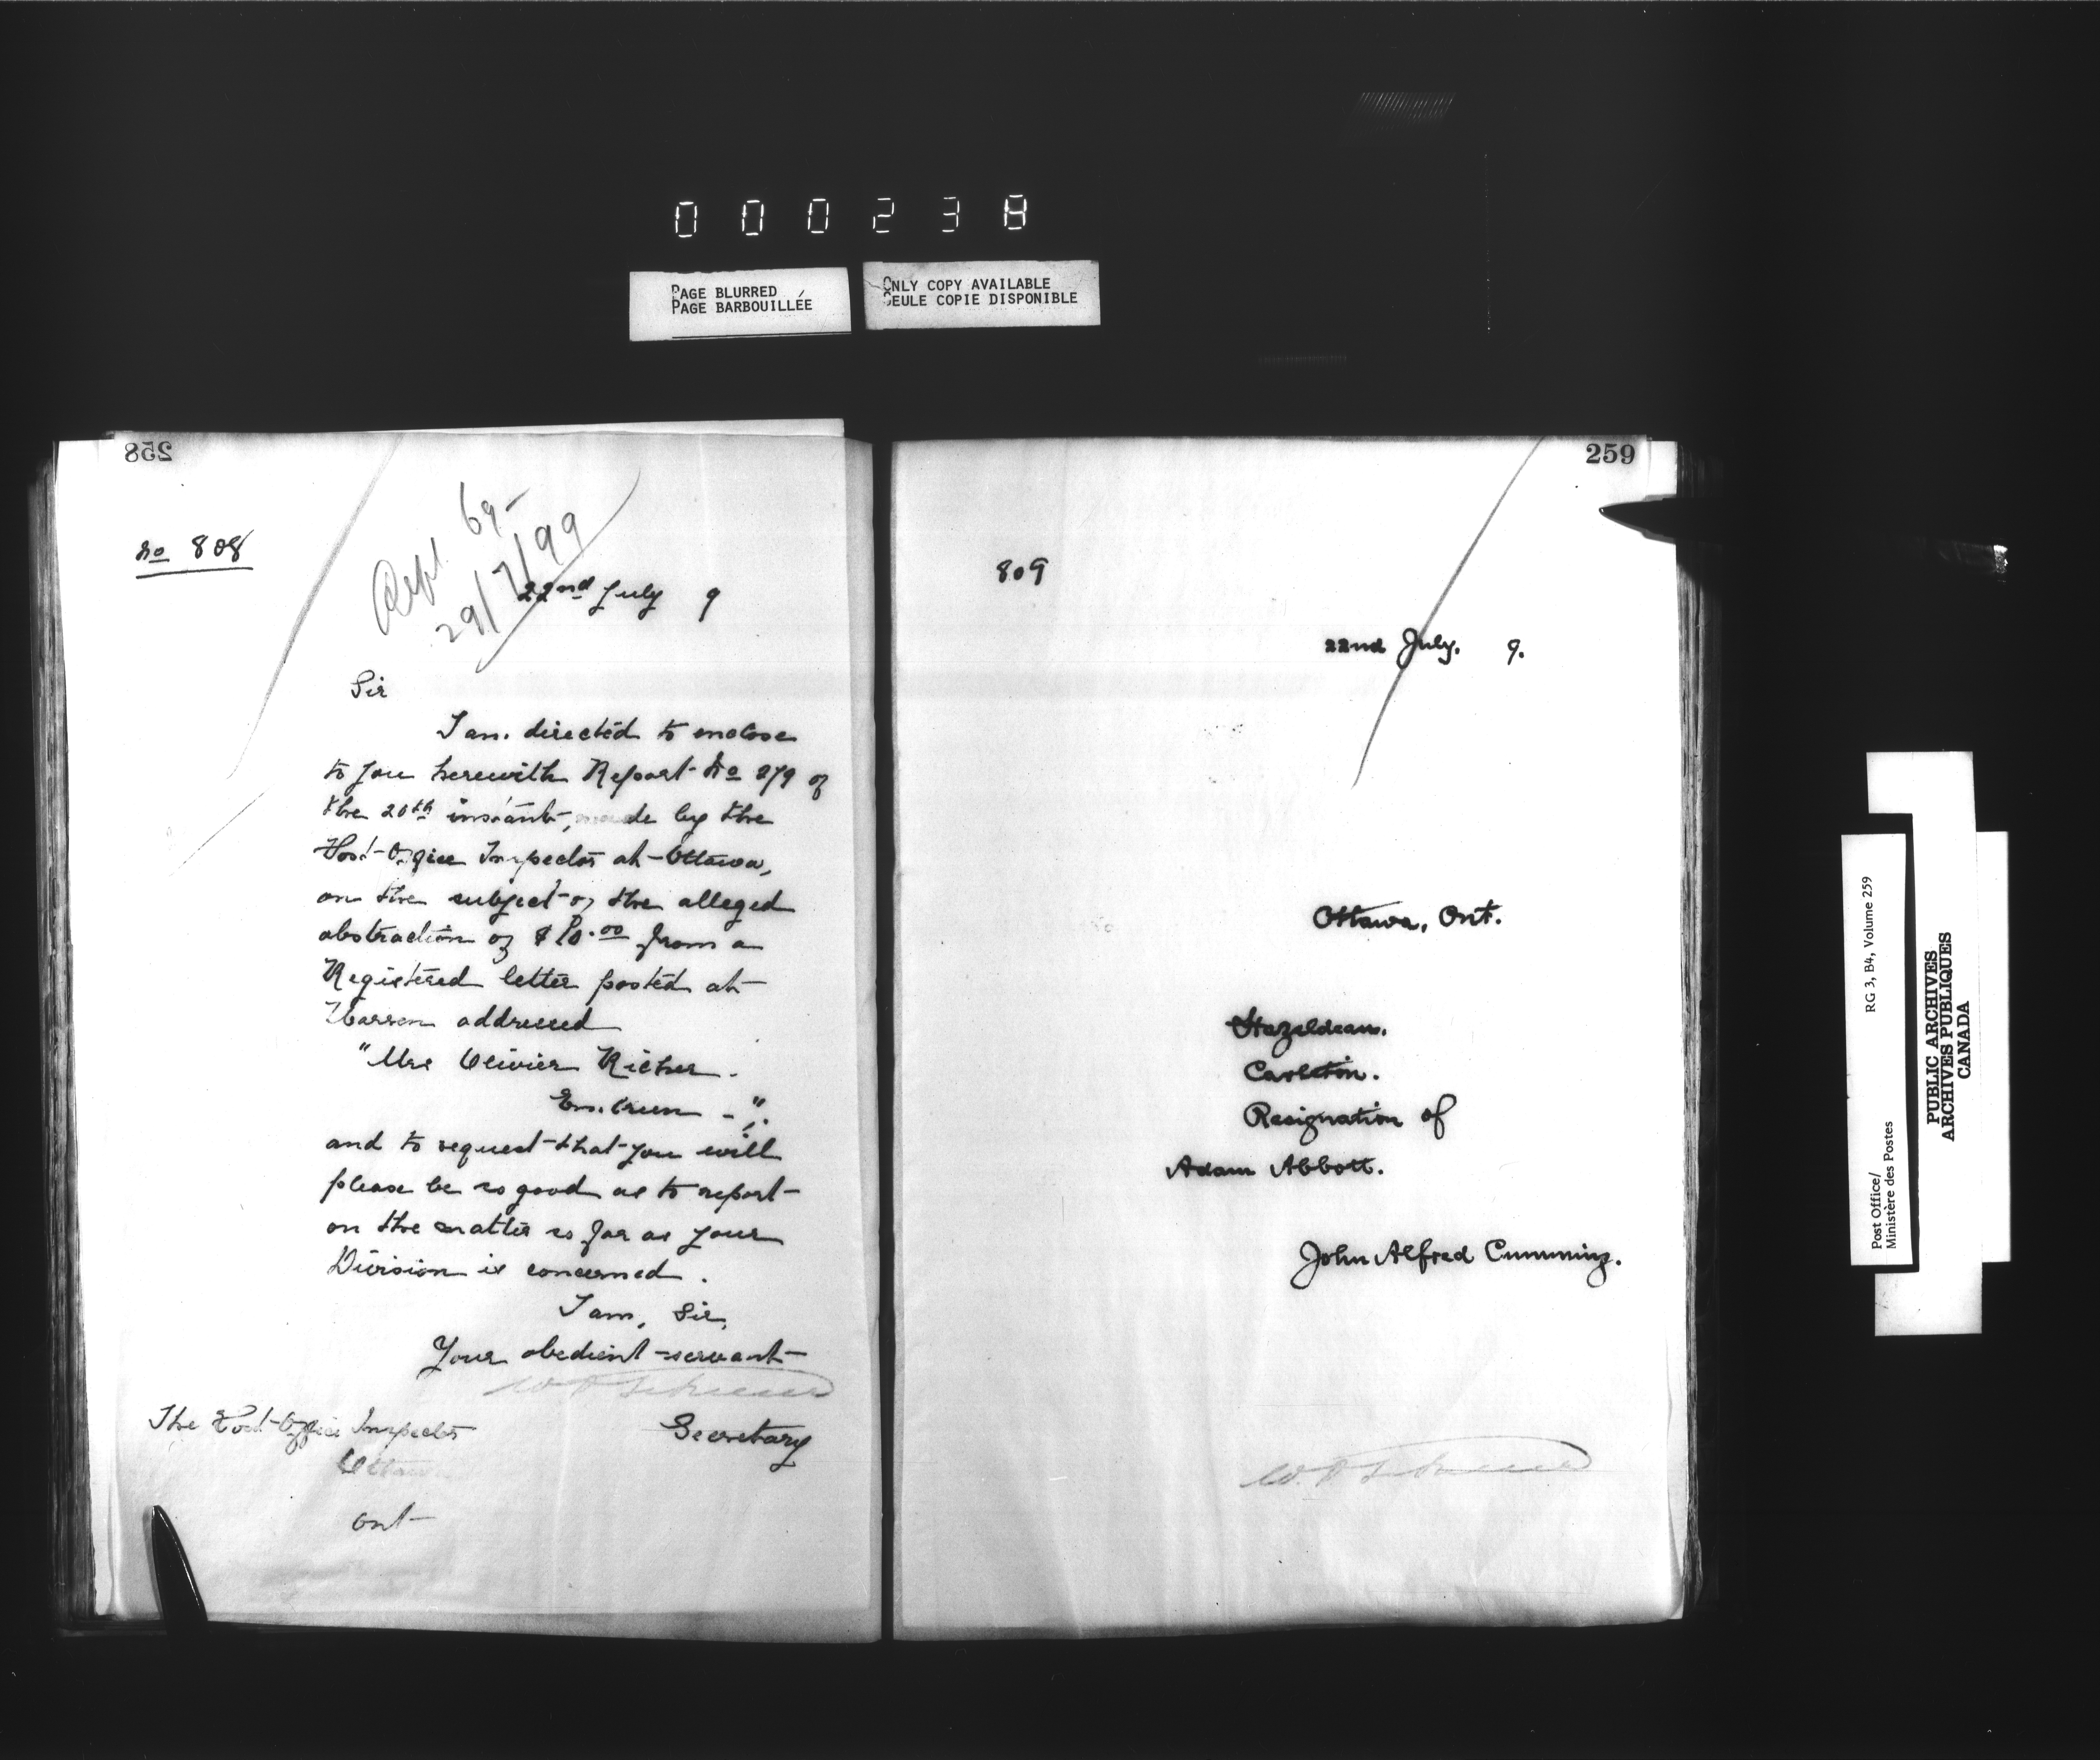 000238
PAGE BLURRED
PAGE BARBOUILLÉE
ONLY COPY AVAILABLE
SEULE COPIE DISPONIBLE
258
No 808
Rept. 69-
29/7/99
22nd July 9
Sir
I am directed to enclose
to you herewith Report No 279 of
the 20th instant, made by the
Post-Office Inspector at Ottawa,
on the subject of the alleged
abstraction of $10.00 from a
Registered letter posted at
Warren addressed
"Mrs Olivier Richer.
Embrun -".
and to request that you will
please be so good as to report
on the matter so far as your
Division is concerned.
I am, Sir,
Your obedient servant
Secretary
The Post-Office Inspector
Ottawa
Ont
259
809
22nd July. 9.
Ottawa, Ont.
Hazeldean.
Carleton.
Resignation of
Adam Abbott.
John Alfred Cumming.
Post Office/ RG 3, B4, Volume 259
Ministère des Postes
PUBLIC ARCHIVES
ARCHIVES PUBLIQUES
CANADA